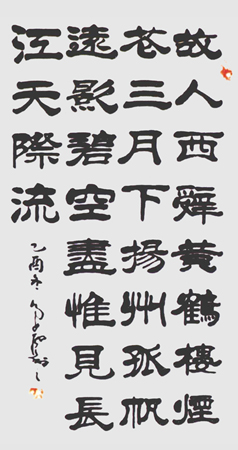 故人西辭黃鶴樓煙
花三月下揚州孤帆
遠影碧空盡惟見長
江天際流
乙酉冬